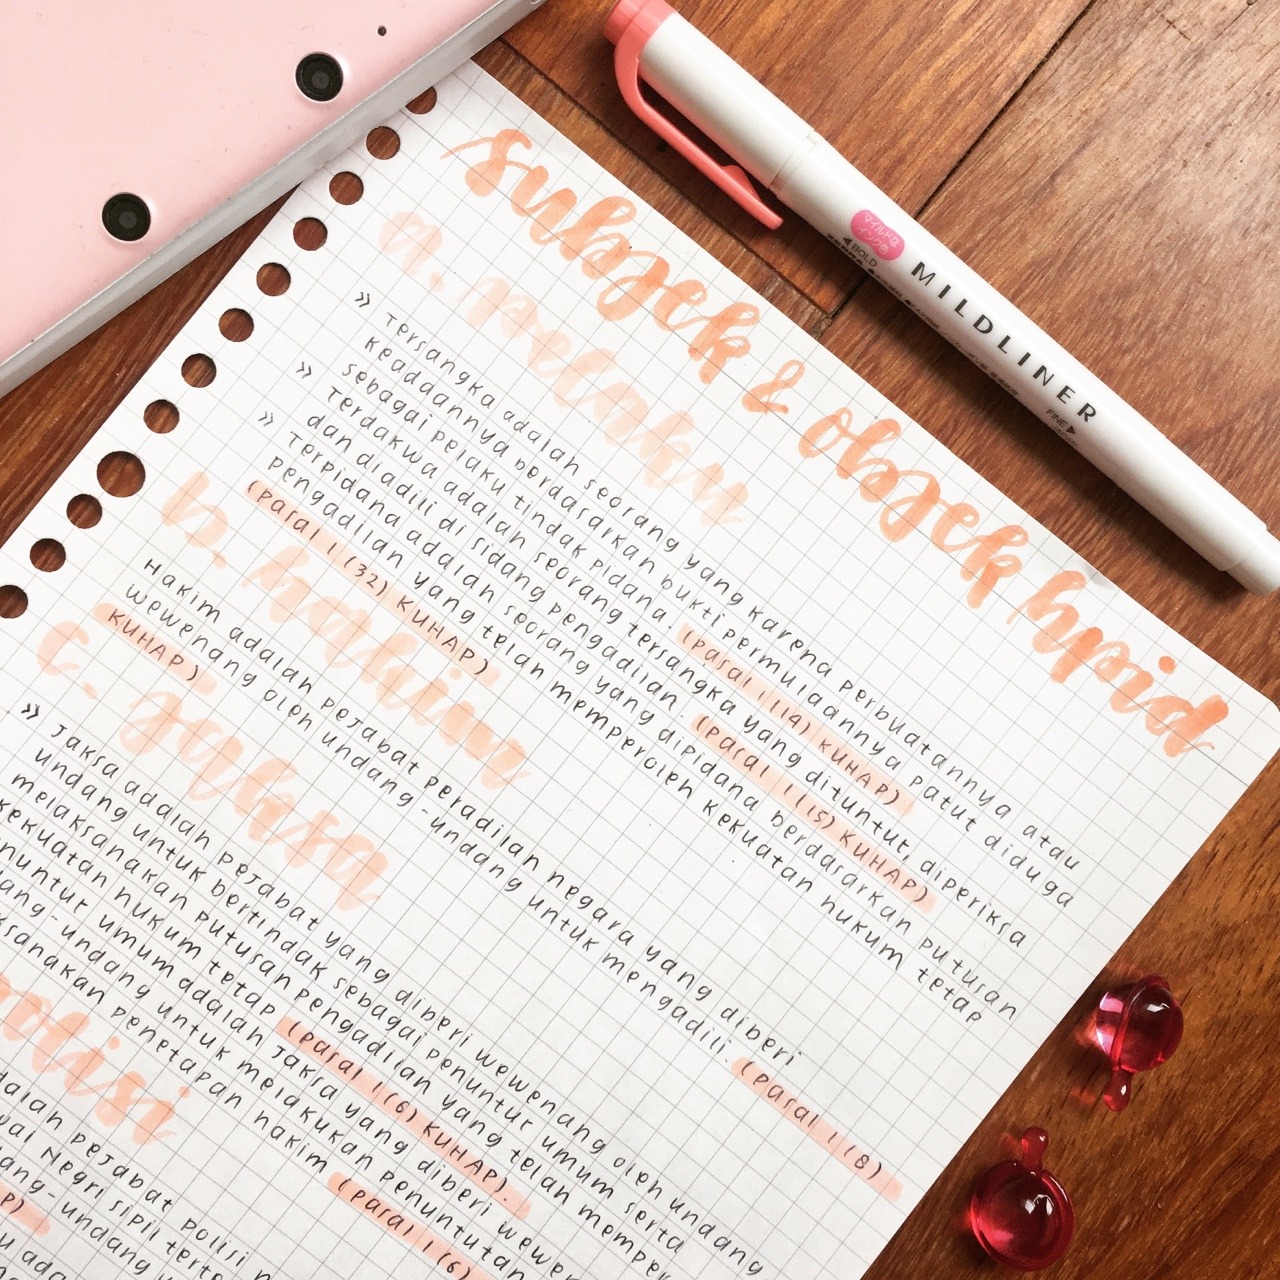 subjek & objek hpid
a. pelaku
» Tersangka adalah seorang yang karena perbuatannya atau
keadaannya berdasarkan bukti permulaannya patut diduga
sebagai pelaku tindak pidana. (pasal 1 (14) KUHAP)
» Terdakwa adalah seorang tersangka yang dituntut, diperiksa
dan diadili di sidang pengadilan. (pasal 1 (15) KUHAP)
» Terpidana adalah seorang yang dipidana berdasarkan putusan
pengadilan yang telah memperoleh kekuatan hukum tetap
(pasal 1 (32) KUHAP)
b. hakim
Hakim adalah pejabat peradilan negara yang diberi
wewenang oleh undang-undang untuk mengadili. (pasal 1 (8)
KUHAP)
c. jaksa
» Jaksa adalah pejabat yang diberi wewenang oleh undang
undang untuk bertindak sebagai penuntut umum serta
melaksanakan putusan pengadilan yang telah mempe
kekuatan hukum tetap (pasal 1 (6) KUHAP).
nuntut umum adalah jaksa yang diberi wewe
ang-undang untuk melakukan penuntutan
ksanakan penetapan hakim (pasal 1 (6)
polisi
dalah pejabat polisi n
wai Negri sipil terte
ang-undang u
AP)
u ada
マイルドな
インク色
◀BOLD
MILDLINER
FINE▶